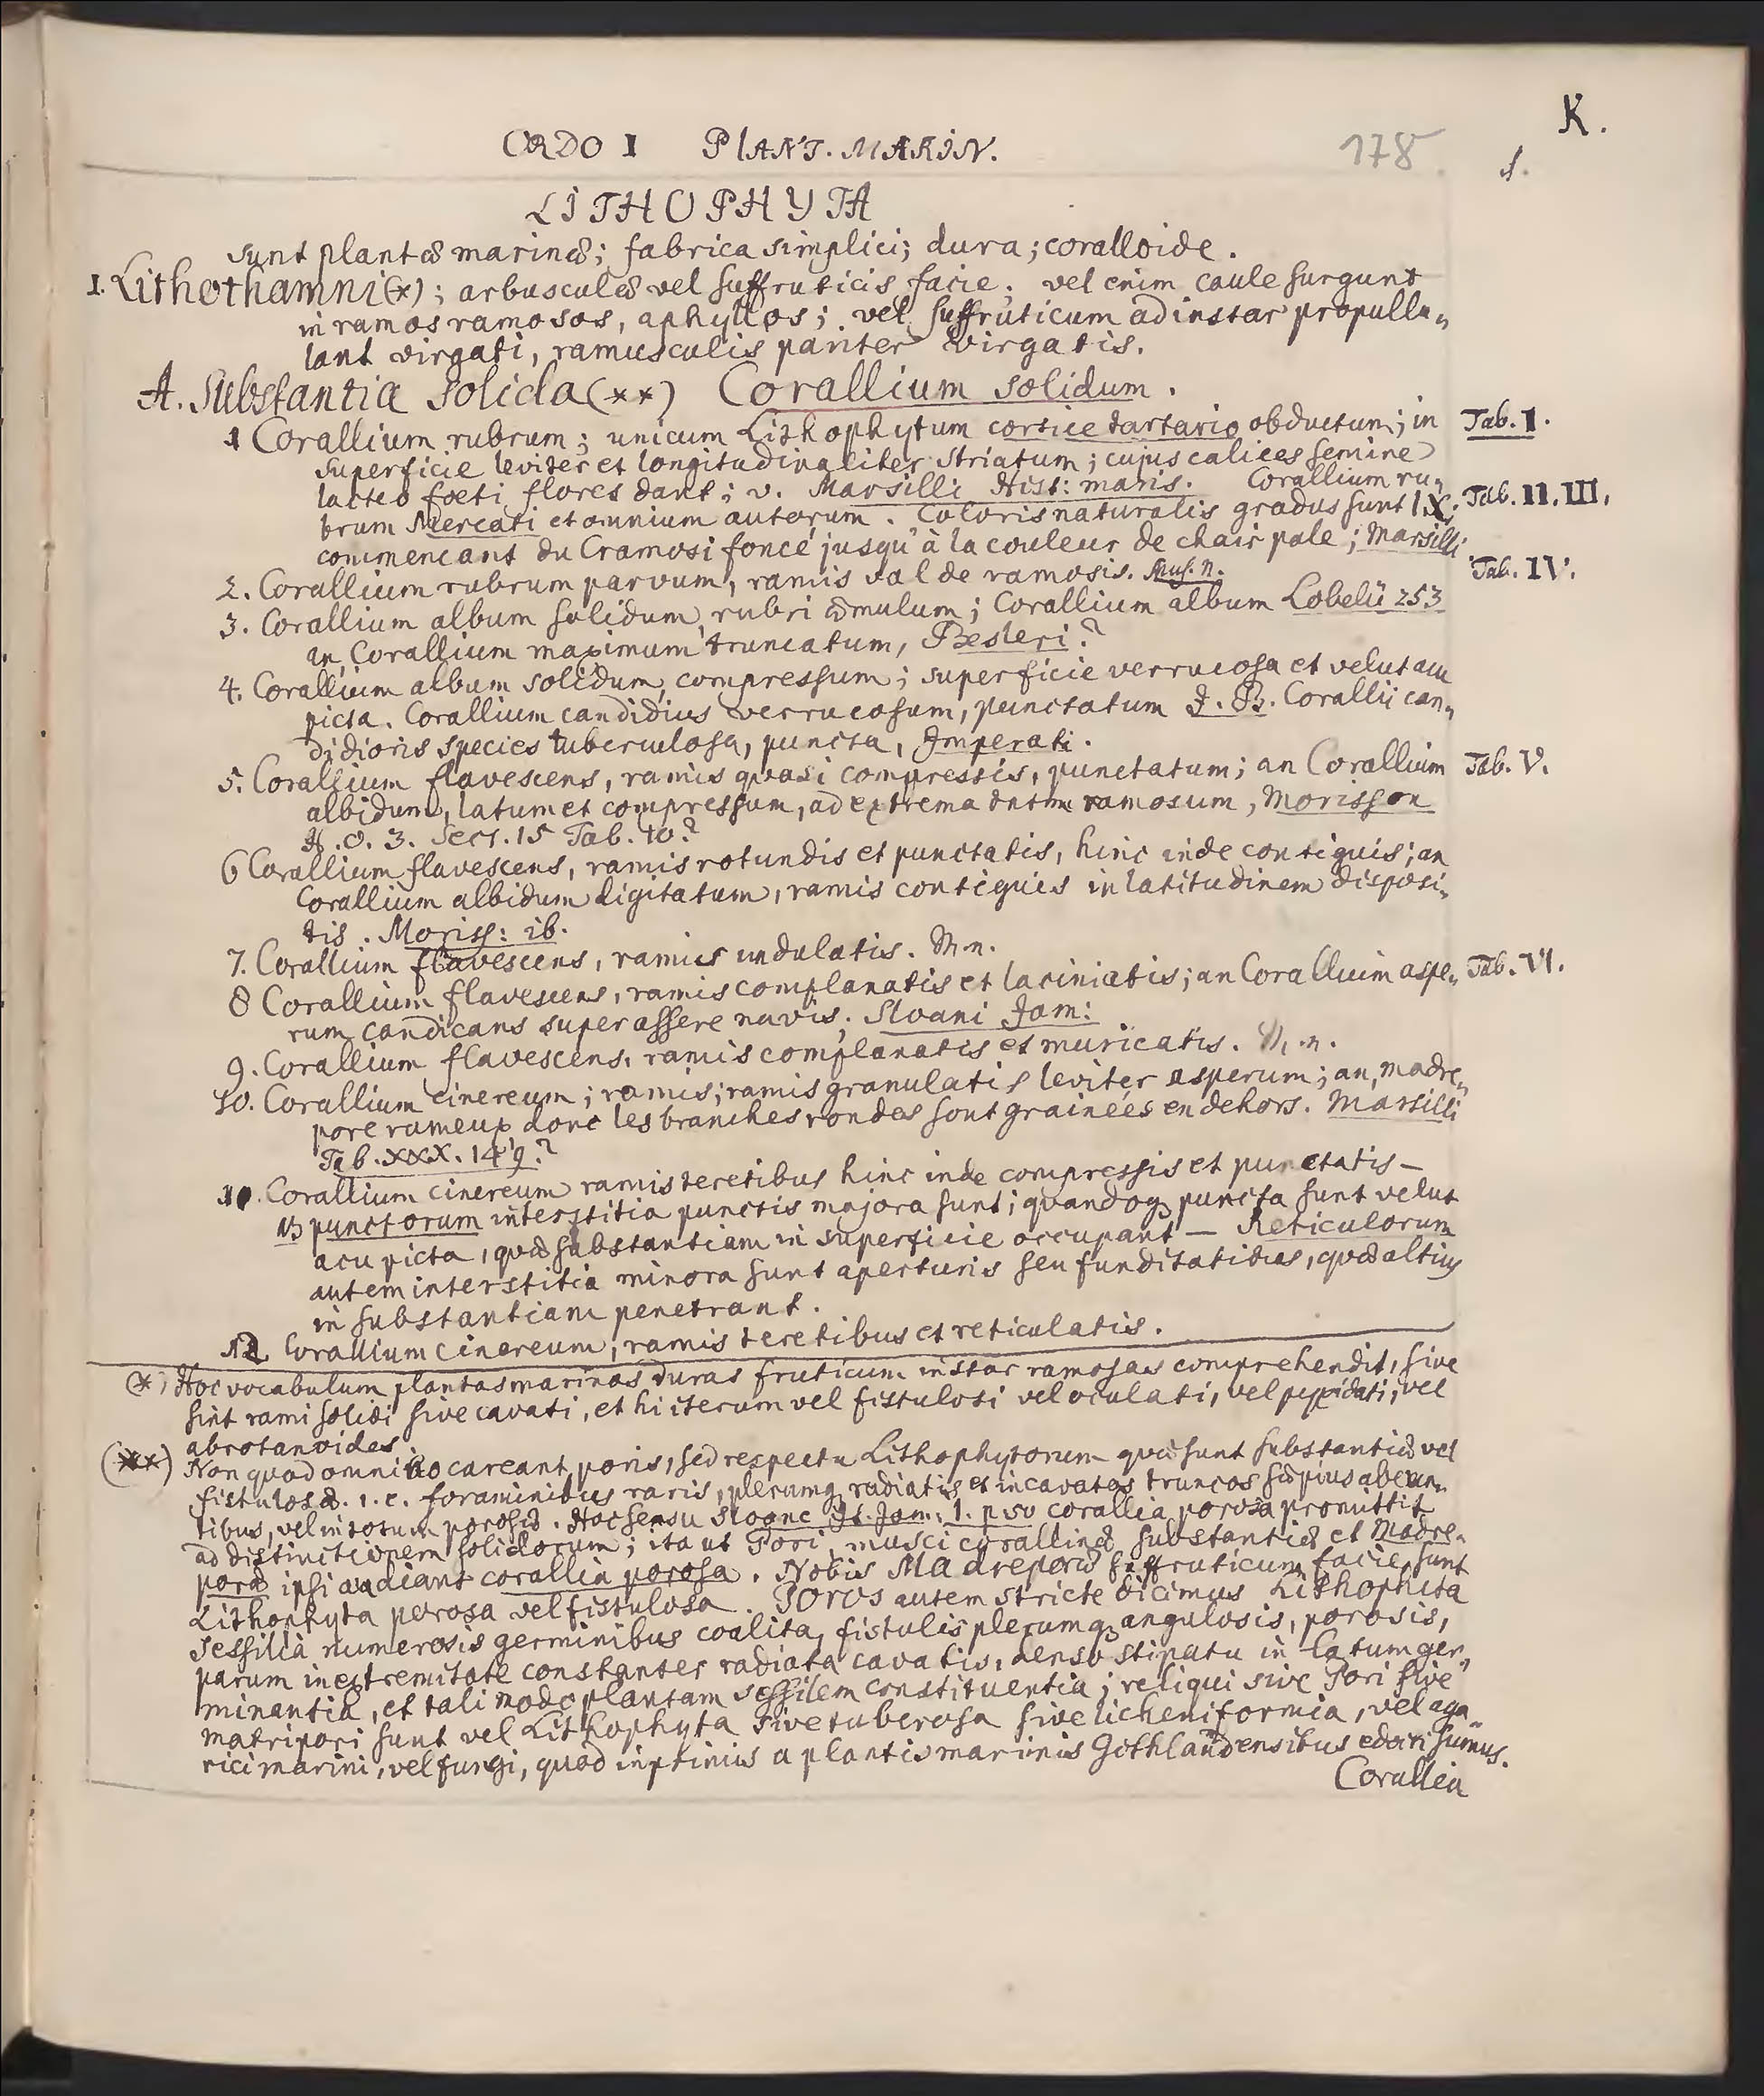 K.
ORDO I PLANT. MARIN.
178
1.
LITHOPHYTA
sunt plantæ marinæ; fabrica simplici; dura; coralloide.
I. Lithothamni (*); arbusculæ vel suffruticis facie; vel enim caule surgunt
in ramos ramosos, aphyllos; vel suffruticum ad instar propullu„
lant virgati, ramusculis pariter virgatis.
A. Substantia solida (**) Corallium solidum.
1 Corallium rubrum; unicum Lithophytum cortice tartario obductum; in Tab. I.
superficie leviter et longitudinaliter striatum; cujus calices semine
lacteo foeti flores dant; v. Marsilli Hist: maris. Corallium ru„
brum Mercati et omnium autorum. Coloris naturalis gradus sunt IX; Tab. II. III.
commencant du Cramosi foncé jusqu'à la couleur de chair pale; Marsilli
2. Corallium rubrum parvum, ramis valde ramosis. Mus. n. Tab. IV.
3. Corallium album solidum, rubri æmulum; Corallium album Lobelii 253
an, Corallium maximum truncatum, Besleri?
4. Corallium album solidum, compressum; superficie verrucosa et velut acu
picta. Corallium candidius verrucosum, punctatum J. B. Corallii can„
didioris species tuberculosa, puncta, Imperati.
5. Corallium flavescens, ramis quasi compressis, punctatum; an Corallium Tab. V.
albidum, latum et compressum, ad extrema ramosum, Morisson
H. O. 3. Sect. 15 Tab. 10?
6 Corallium flavescens, ramis rotundis et punctatis, hinc inde contiguis; an
Corallium albidum digitatum, ramis contiguis in latitudinem disposi„
tis. Moriss: ib.
7. Corallium flavescens, ramis undulatis. M. n.
8 Corallium flavescens, ramis complanatis et laciniatis; an Corallium aspe„ Tab. VI.
rum candicans super assere navis; Sloani Jam:
9. Corallium flavescens, ramis complanatis et muricatis. M. n.
10. Corallium cinereum; ramis; ramis granulatis leviter asperum; an, madre„
pore rameux donc les branches rondes sont grainées en dehors. Marsilli
Tab. XXX. 149?
11. Corallium cinereum ramis teretibus hinc inde compressis et punctatis –
NB punctorum interstitia punctis majora sunt; quandoq; puncta sunt velut
acu picta, quæ substantiam in superficie occupant – Reticulorum
autem interstitia minora sunt aperturis seu funditatibus, quæ altius
in substantiam penetrant.
12. Corallium cinereum, ramis teretibus et reticulatis.
(*) Hoc vocabulum plantas marinas duras fruticum instar ramosas comprehendit, sive
sint rami solidi sive cavati, et hi iterum vel fistulosi vel oculati, vel pyxidati, vel
abrotanoides.
(**) Non quod omnino careant poris, sed respectu Lithophytorum quæ sunt substantiæ vel
fistulosæ. i. e. foraminibus raris, plerumq; radiatis et in cavatos truncos sæpius abeun„
tibus, vel in totum porosæ. Hoc sensu Sloane H. Jam: 1. p 50 corallia porosa promittit
ad distinctionem solidorum; ita ut Pori, musci corallinæ substantiæ et Madre„
poræ ipsi audiant corallia porosa. Nobis Madreporæ suffruticum facie, sunt
Lithophyta porosa vel fistulosa. Poros autem stricte dicimus Lithophita
sessilia numerosis germinibus coalita, fistulis plerumq; angulosis, porosis,
parum in extremitate constanter radiata cavatis, denso stipatu in latum ger„
minantia, et tali modo plantam sessilem constituentia; reliqui sive Pori sive
matripori sunt vel Lithophyta sive tuberosa sive licheniformia, vel aga„
rici marini, vel fungi, quod inprimis a plantis marinis Gothlandensibus edocti sumus.
Corallia